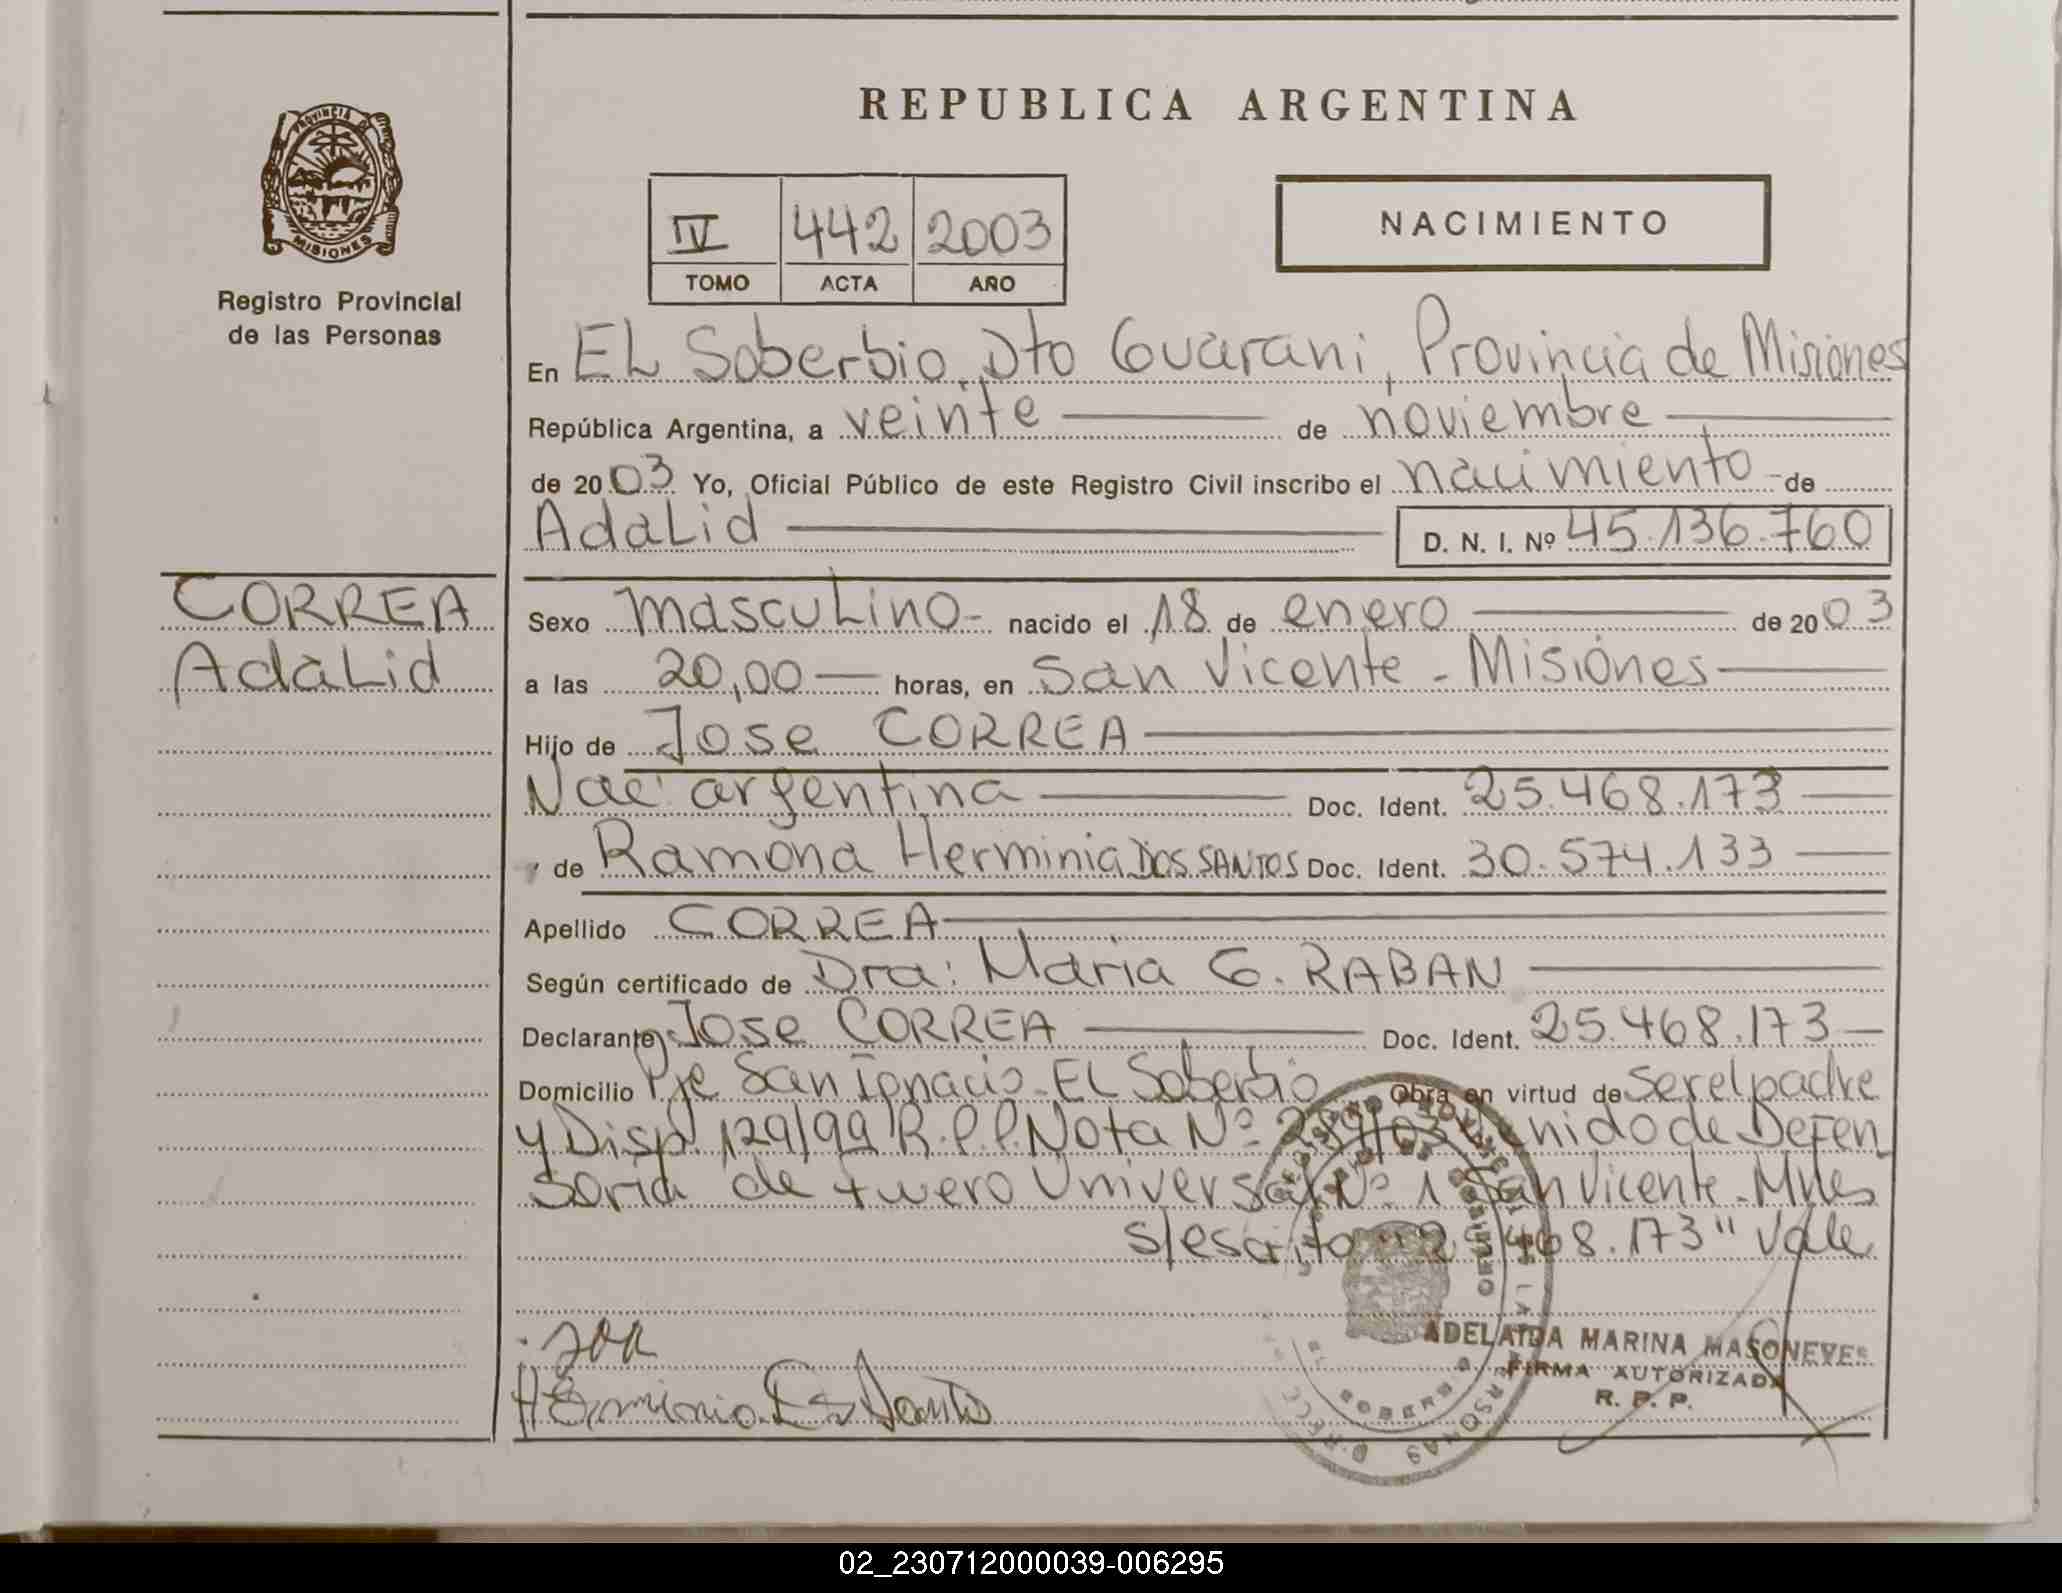 REPUBLICA ARGENTINA
PROVINCIA DE
MISIONES
Registro Provincial
de las Personas
IV 442 2003
TOMO ACTA AÑO
NACIMIENTO
En EL Soberbio, Dto Guarani, Provincia de Misiones
República Argentina, a veinte de noviembre
de 2003 Yo, Oficial Público de este Registro Civil inscribo el nacimiento de
AdaLid D. N. I. Nº 45.136.760
CORREA
AdaLid
Sexo mascuLino - nacido el 18 de enero de 2003
a las 20,00 horas, en San Vicente - Misiones
Hijo de Jose CORREA
Nac: argentina Doc. Ident. 25.468.173
y de Ramona Herminia DOS SANTOS Doc. Ident. 30.574.133
Apellido CORREA
Según certificado de Dra: Maria G. RABAN
Declarante Jose CORREA Doc. Ident. 25.468.173
Domicilio Pje San Ignacio - EL Soberbio Obra en virtud de ser el padre
y Disp. 129/99 R.P.P. Nota Nº de Defen
soria de Fuero Universal Nº 1 San Vicente - Mnes
s/escrito 468.173" Vale
ADELAIDA MARINA MASONEVES
FIRMA AUTORIZADA
R. P. P.
02_230712000039-006295